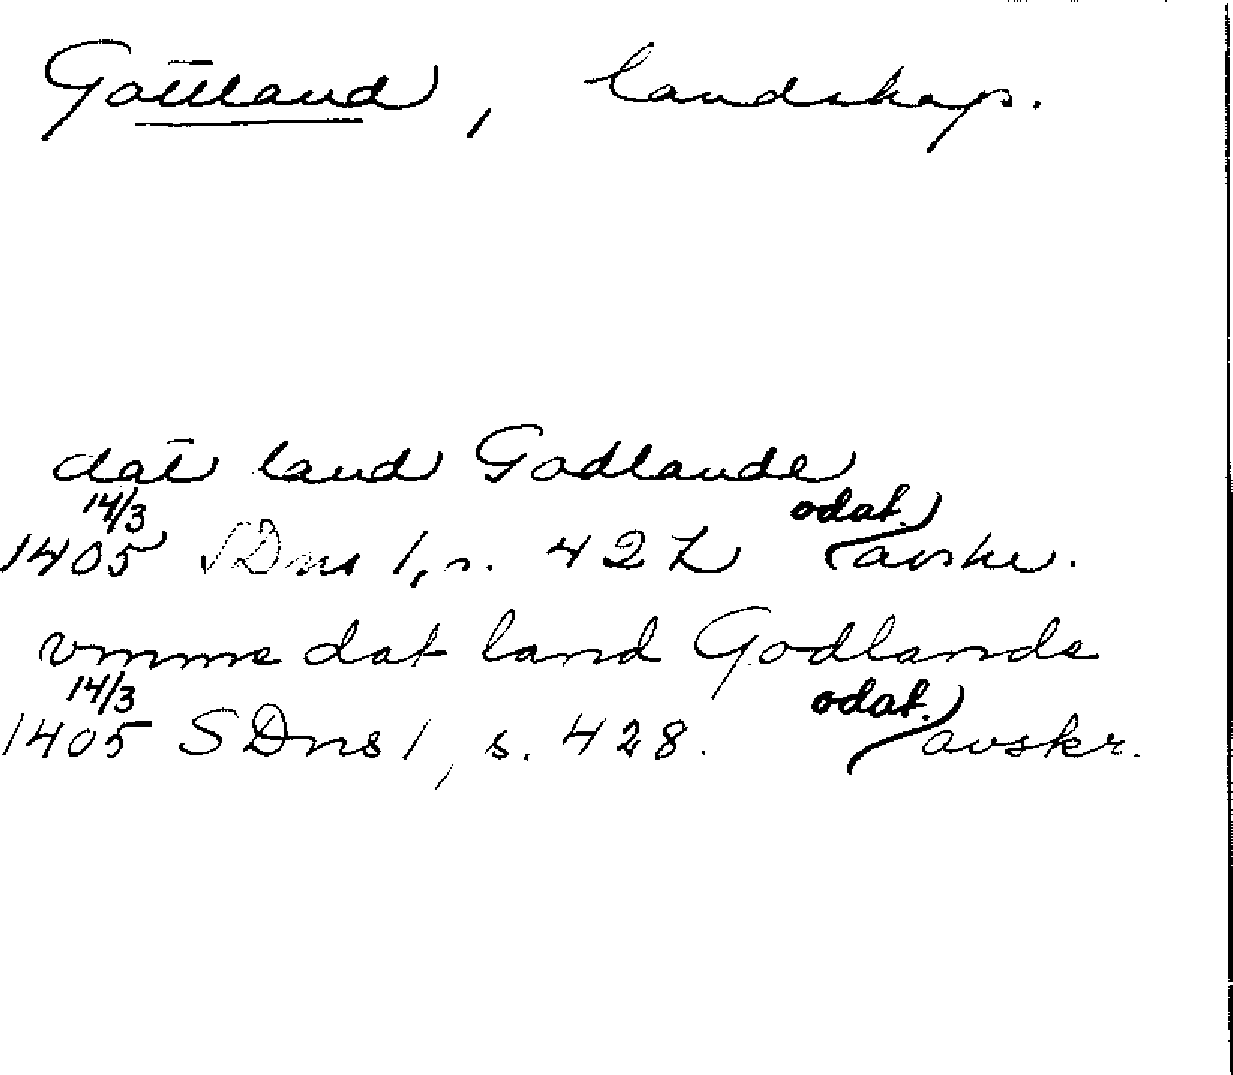 Gottland, landskap.
dat land Godlande
14/3 odat.
1405 SDns 1, s. 427 avskr.
vmme dat land Godlande
14/3 odat.
1405 SDns 1, s. 428. avskr.